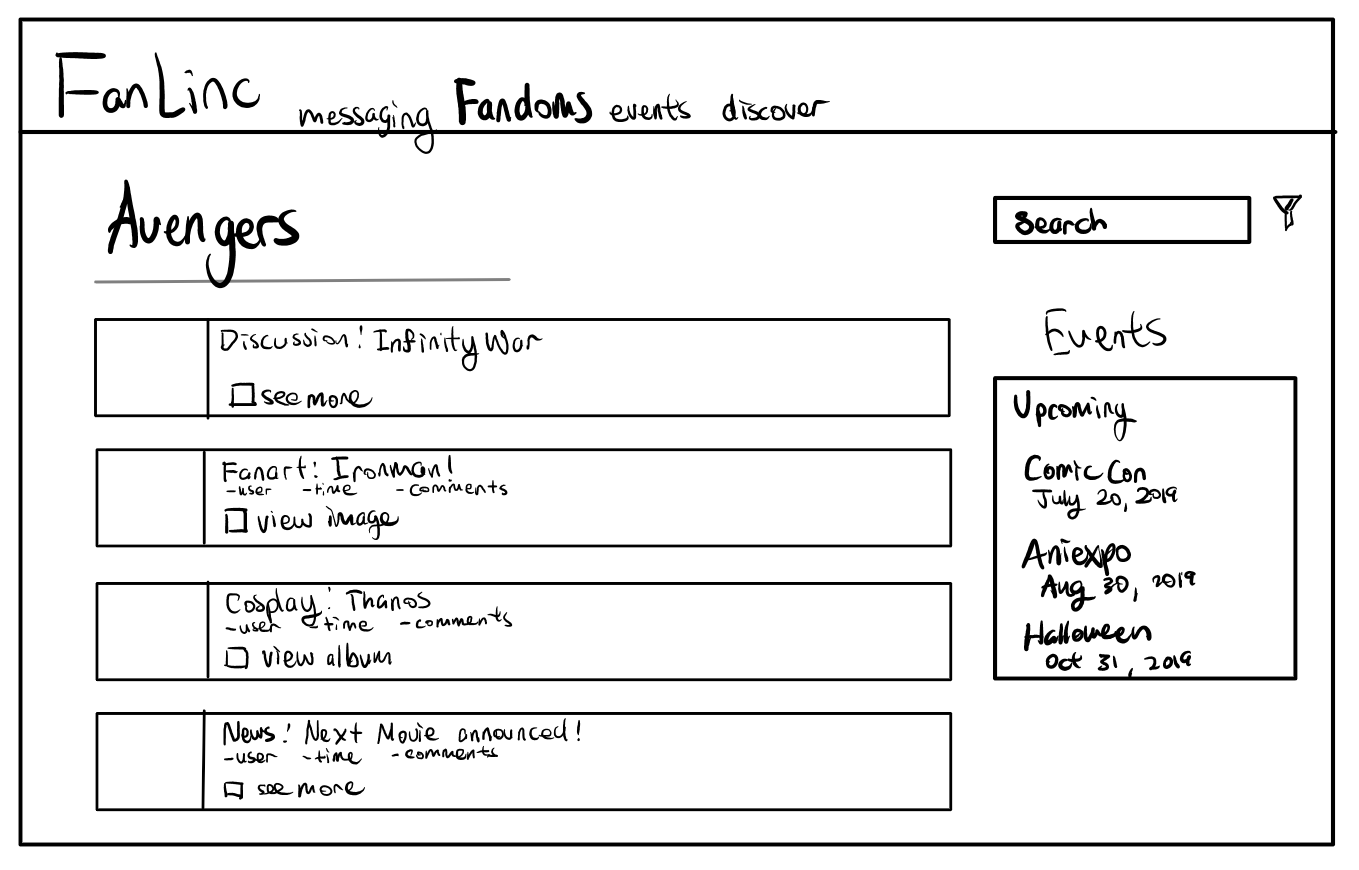 FanLinc messaging Fandoms events discover
Avengers
Search
Discussion! Infinity War
see more
Fanart! Ironman!
-user -time -comments
view image
Cosplay! Thanos
-user -time -comments
view album
News! Next Movie announced!
-user -time -comments
see more
Events
Upcoming
Comic Con
July 20, 2019
Aniexpo
Aug 30, 2019
Halloween
Oct 31, 2019